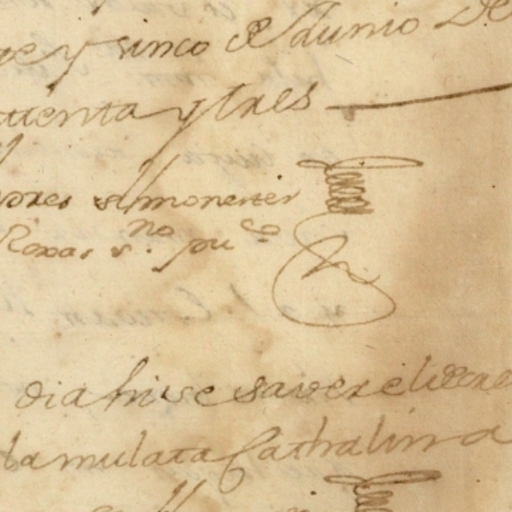 te y sinco de Junio De
ttenta y tres
dores el monester
Roxas s.no pu.co
dia hise saver el decre
la mulata Cathalina